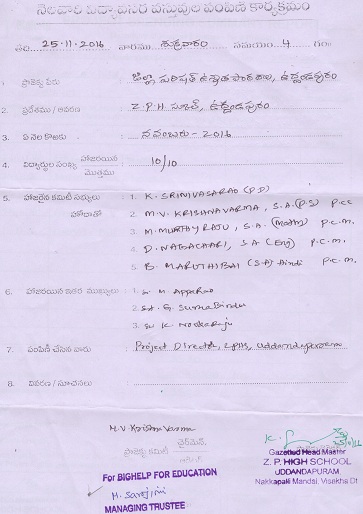 నెలవారి విద్యావసర వస్తువుల పంపిణీ కార్యక్రమం
తేది. 25-11-2016 వారము శుక్రవారం సమయం 4 గం॥
1. ప్రాజెక్టు పేరు జిల్లా పరిషత్ ఉన్నత పాఠశాల, ఉద్దండపురం
2. ప్రదేశము / ఆవరణ Z.P.H స్కూల్, ఉద్దండపురం
3. ఏ నెల కొరకు నవంబరు - 2016
4. విద్యార్థుల సంఖ్య హాజరయిన 10/10
మొత్తము
5. హాజరైన కమిటీ సభ్యులు 1. K. SRINIVASARAO (P.D)
హోదాతో 2. M.V. KRISHNAVARMA, S.A.(P.S) P.C.C
3. M. MURTHY RAJU, S.A. (Maths) P.C.M.
4. D. NAGACHARI, S.A (Eng) P.C.M.
5. B. MARUTHI BAI (S.A) Hindi P.C.M.
6. హాజరయిన ఇతర ముఖ్యులు 1. Sri M. Apparao
2. Smt. G. Suma Bindu
3. Sri K. Nookaraju
7. పంపిణీ చేసిన వారు Project Director, ZPHS, Uddandapuram
8. వివరణ / సూచనలు
M.V. Krishna Varma
ఛైర్మెన్.
ప్రాజెక్టు కమిటీ
Gazetted Head Master
Z. P. HIGH SCHOOL
For BIGHELP FOR EDUCATION
UDDANDAPURAM
Nakkapalli Mandal, Visakha Dt
M. Sarojini
MANAGING TRUSTEE